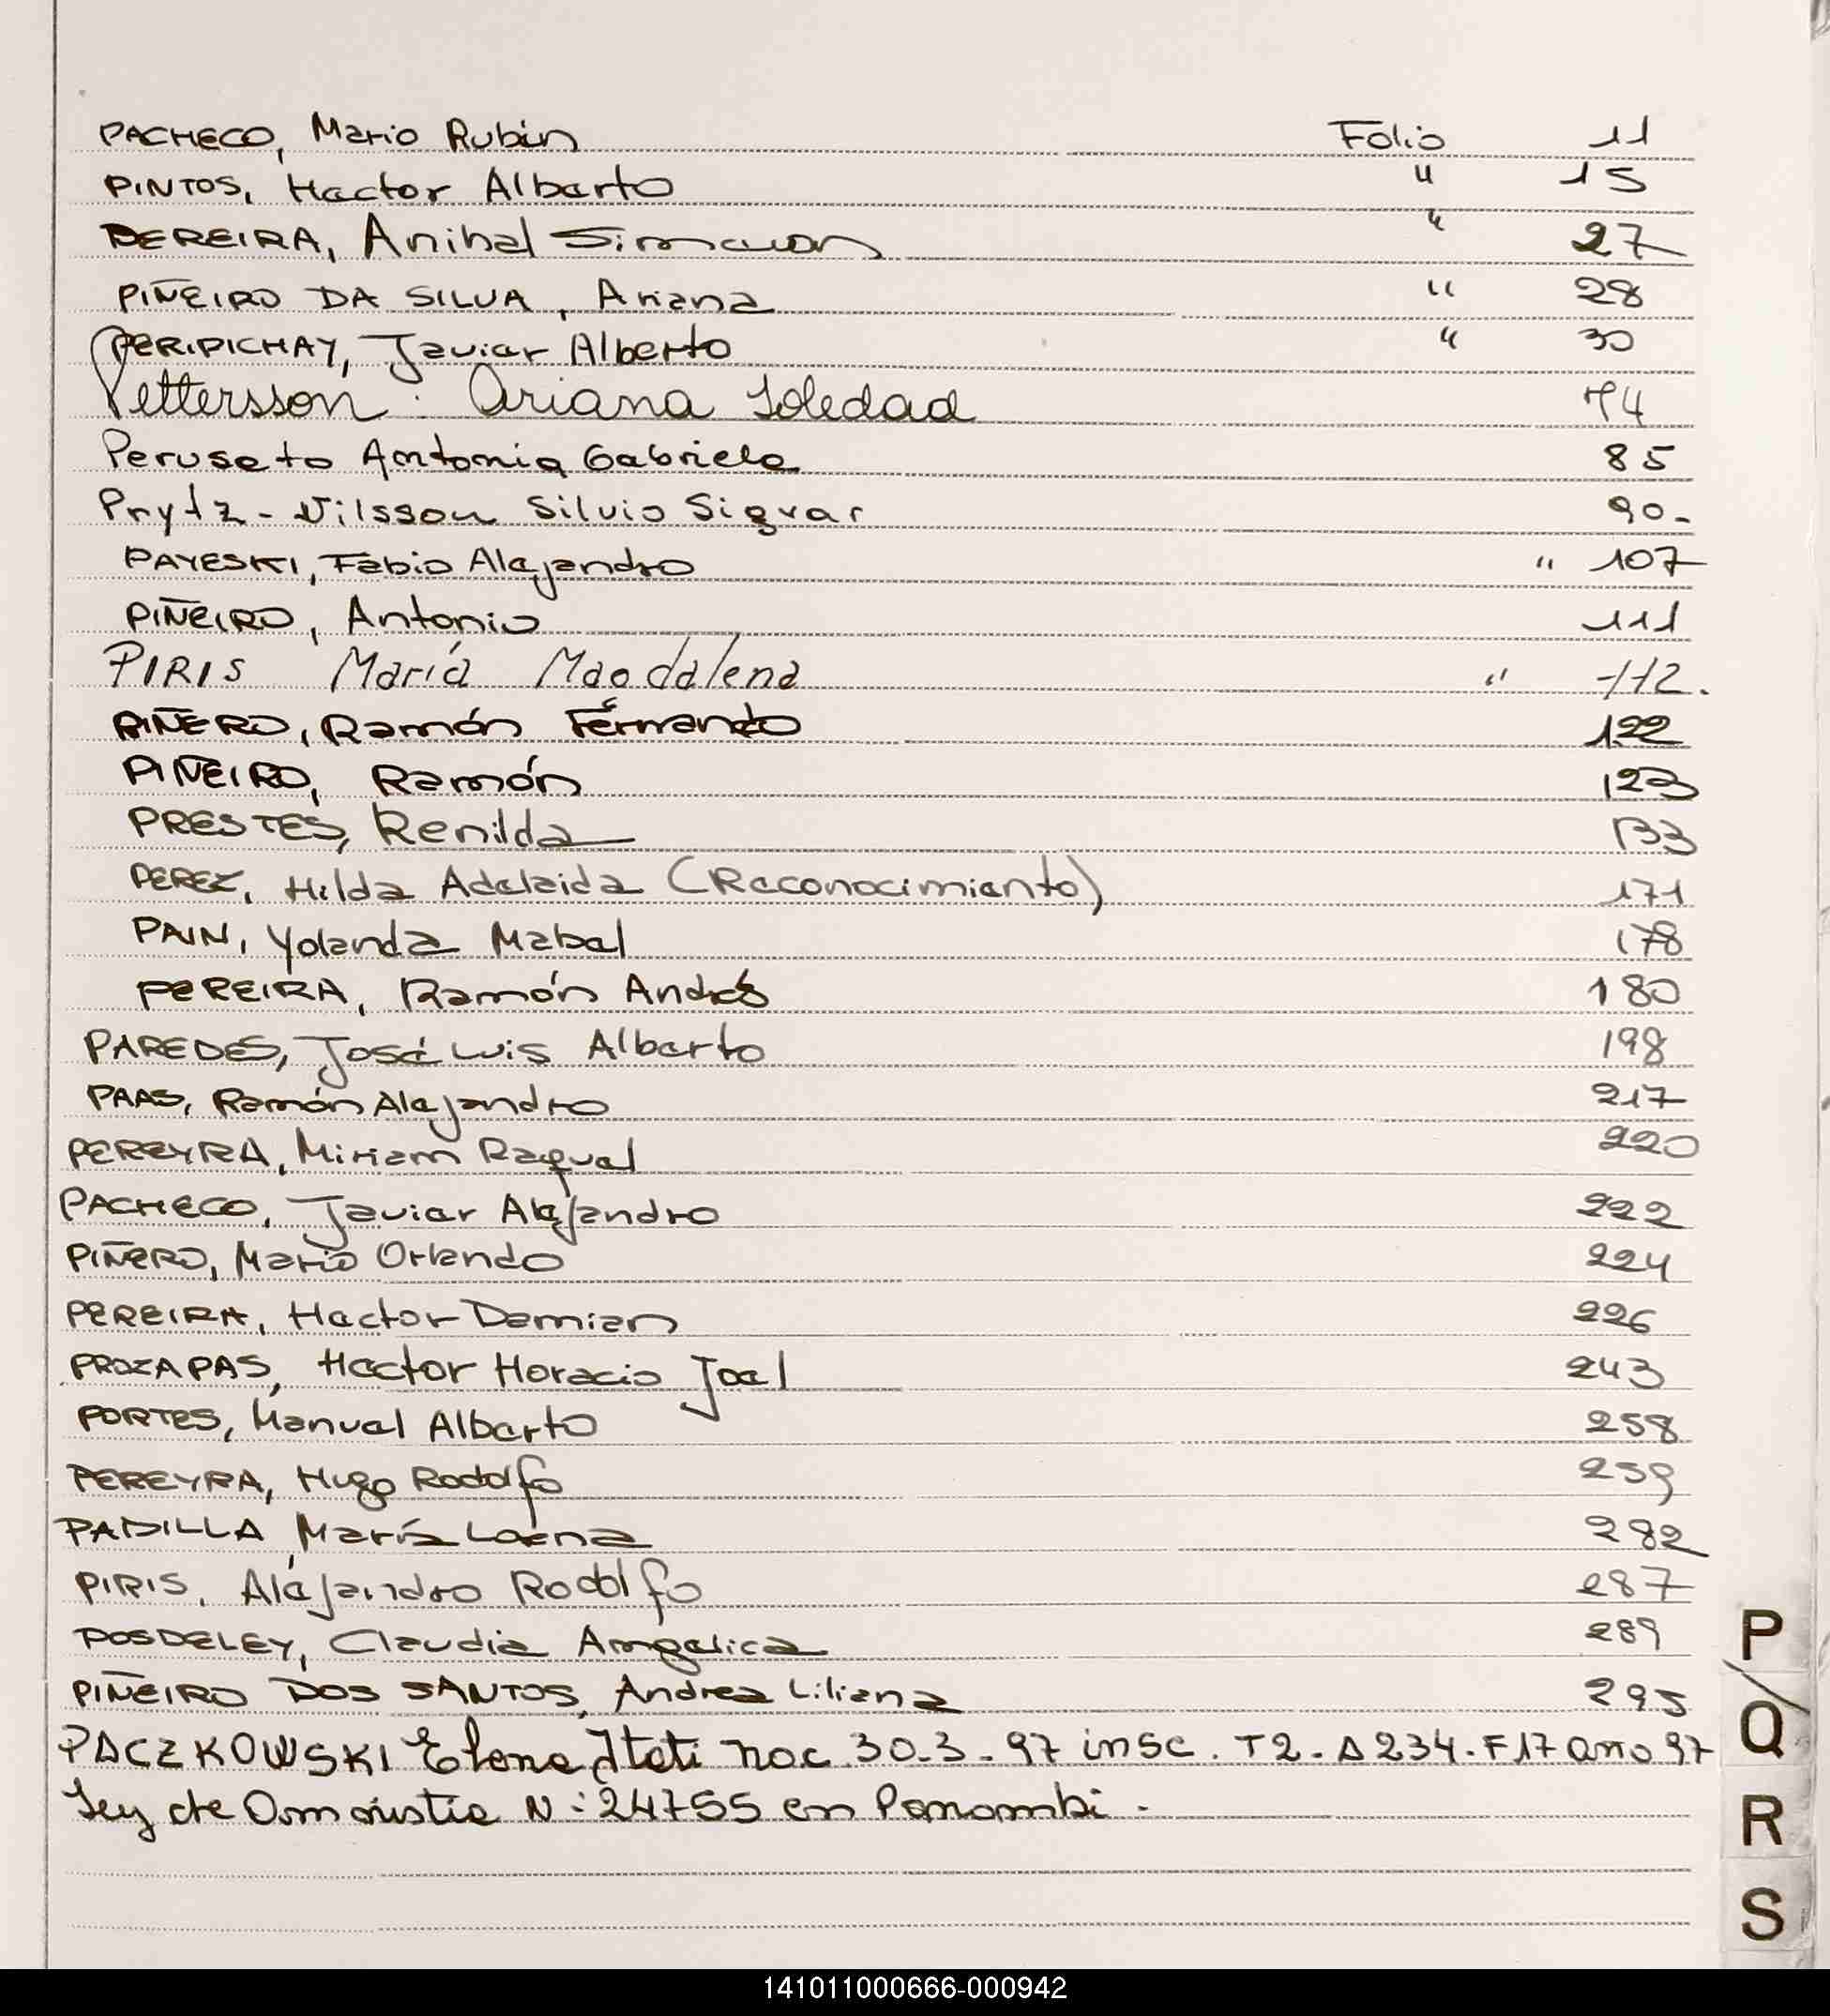 PACHECO, Mario Rubén Folio 11
PINTOS, Hector Alberto " 15
PEREIRA, Anibal Simeon " 27
PIÑEIRO DA SILVA, Ariana " 28
PERIPICHAY, Javier Alberto " 30
Pettersson Ariana Soledad 74
Peruseto Antonia Gabriela 85
Prytz - Nilsson Silvio Sigvar 90.
PAYESKI, Fabio Alejandro " 107
PIÑEIRO, Antonio 111
PIRIS María Magdalena " 112.
PIÑERO, Ramón Fernando 122
PIÑEIRO, Ramón 123
PRESTES, Renilda 133
PEREZ, Hilda Adelaida (Reconocimiento) 171
PAIN, Yolanda Mabel 178
PEREIRA, Ramón Andrés 180
PAREDES, José Luis Alberto 198
PAAS, Ramón Alejandro 217
PEREYRA, Miriam Raquel 220
PACHECO, Javier Alejandro 222
PIÑERO, Mario Orlando 224
PEREIRA, Hector Damian 226
PROZAPAS, Hector Horacio Joel 243
PORTES, Manuel Alberto 258
PEREYRA, Hugo Rodolfo 259
PADILLA, María Lorena 282
PIRIS, Alejandro Rodolfo 287
POSDELEY, Claudia Angelica 289
PIÑEIRO DOS SANTOS, Andrea Liliana 295
PACZKOWSKI Elena Itati nac. 30-3-97 insc. T2-A234-F17 año 97
Ley de Amnistia N: 24755 en Panambi.-
P
Q
R
S
141011000666-000942